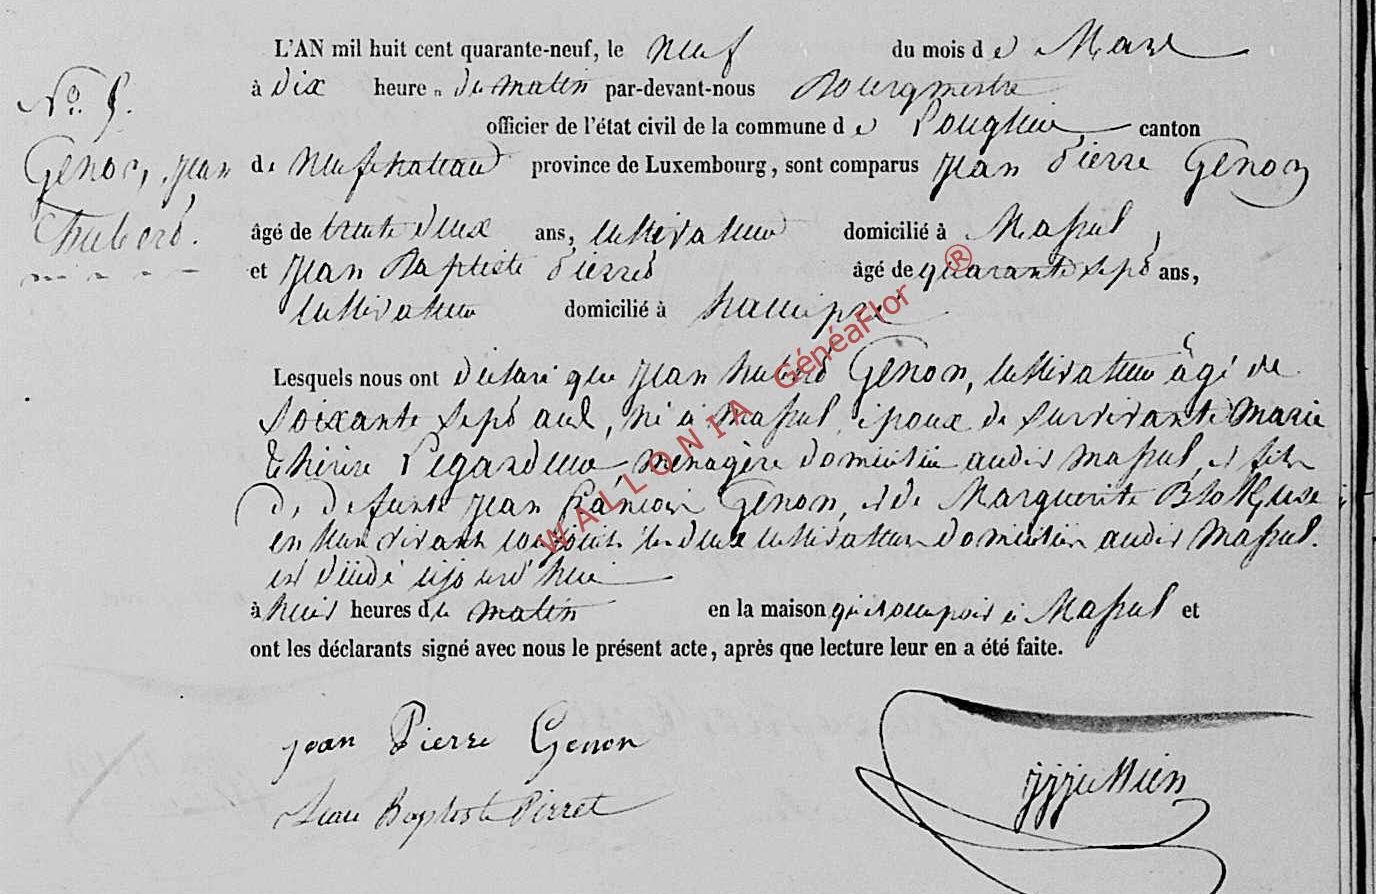 L'AN mil huit cent quarante-neuf, le neuf du mois de Mars
à dix heures du matin par-devant-nous Bourgmestre
officier de l'état civil de la commune de Longlier, canton
de Neufchateau province de Luxembourg, sont comparus Jean Pierre Genon
N° 5.
Genon, Jean
Hubert.
âgé de trente deux ans, cultivateur domicilié à Massul,
et Jean Baptiste Pierret âgé de quarante sept ans,
cultivateur domicilié à hamipré
Lesquels nous ont déclaré que Jean hubert Genon, cultivateur âgé de
soixante sept ans, né à Massul, époux de survivante Marie
thérèse Legardeur ménagère domiciliée audit Massul, et fils
de defunts Jean françois Genon, et de Marguerite
en leur vivant conjoints tous deux cultivateurs domiciliés audit Massul.
est décédé aujourd'hui
à huit heures du matin en la maison qu'il occupoit à Massul et
ont les déclarants signé avec nous le présent acte, après que lecture leur en a été faite.
Jean Pierre Genon
Jean Baptiste Pirret
WALLONIA GénéaFlor ®